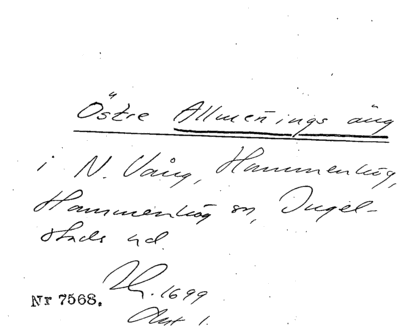 Östre Allmeñings äng
i N. Vång, Hammenhög,
Hammenhög sn, Ingel-
stads hd.
1699
Nr 7568.
Akt 1.